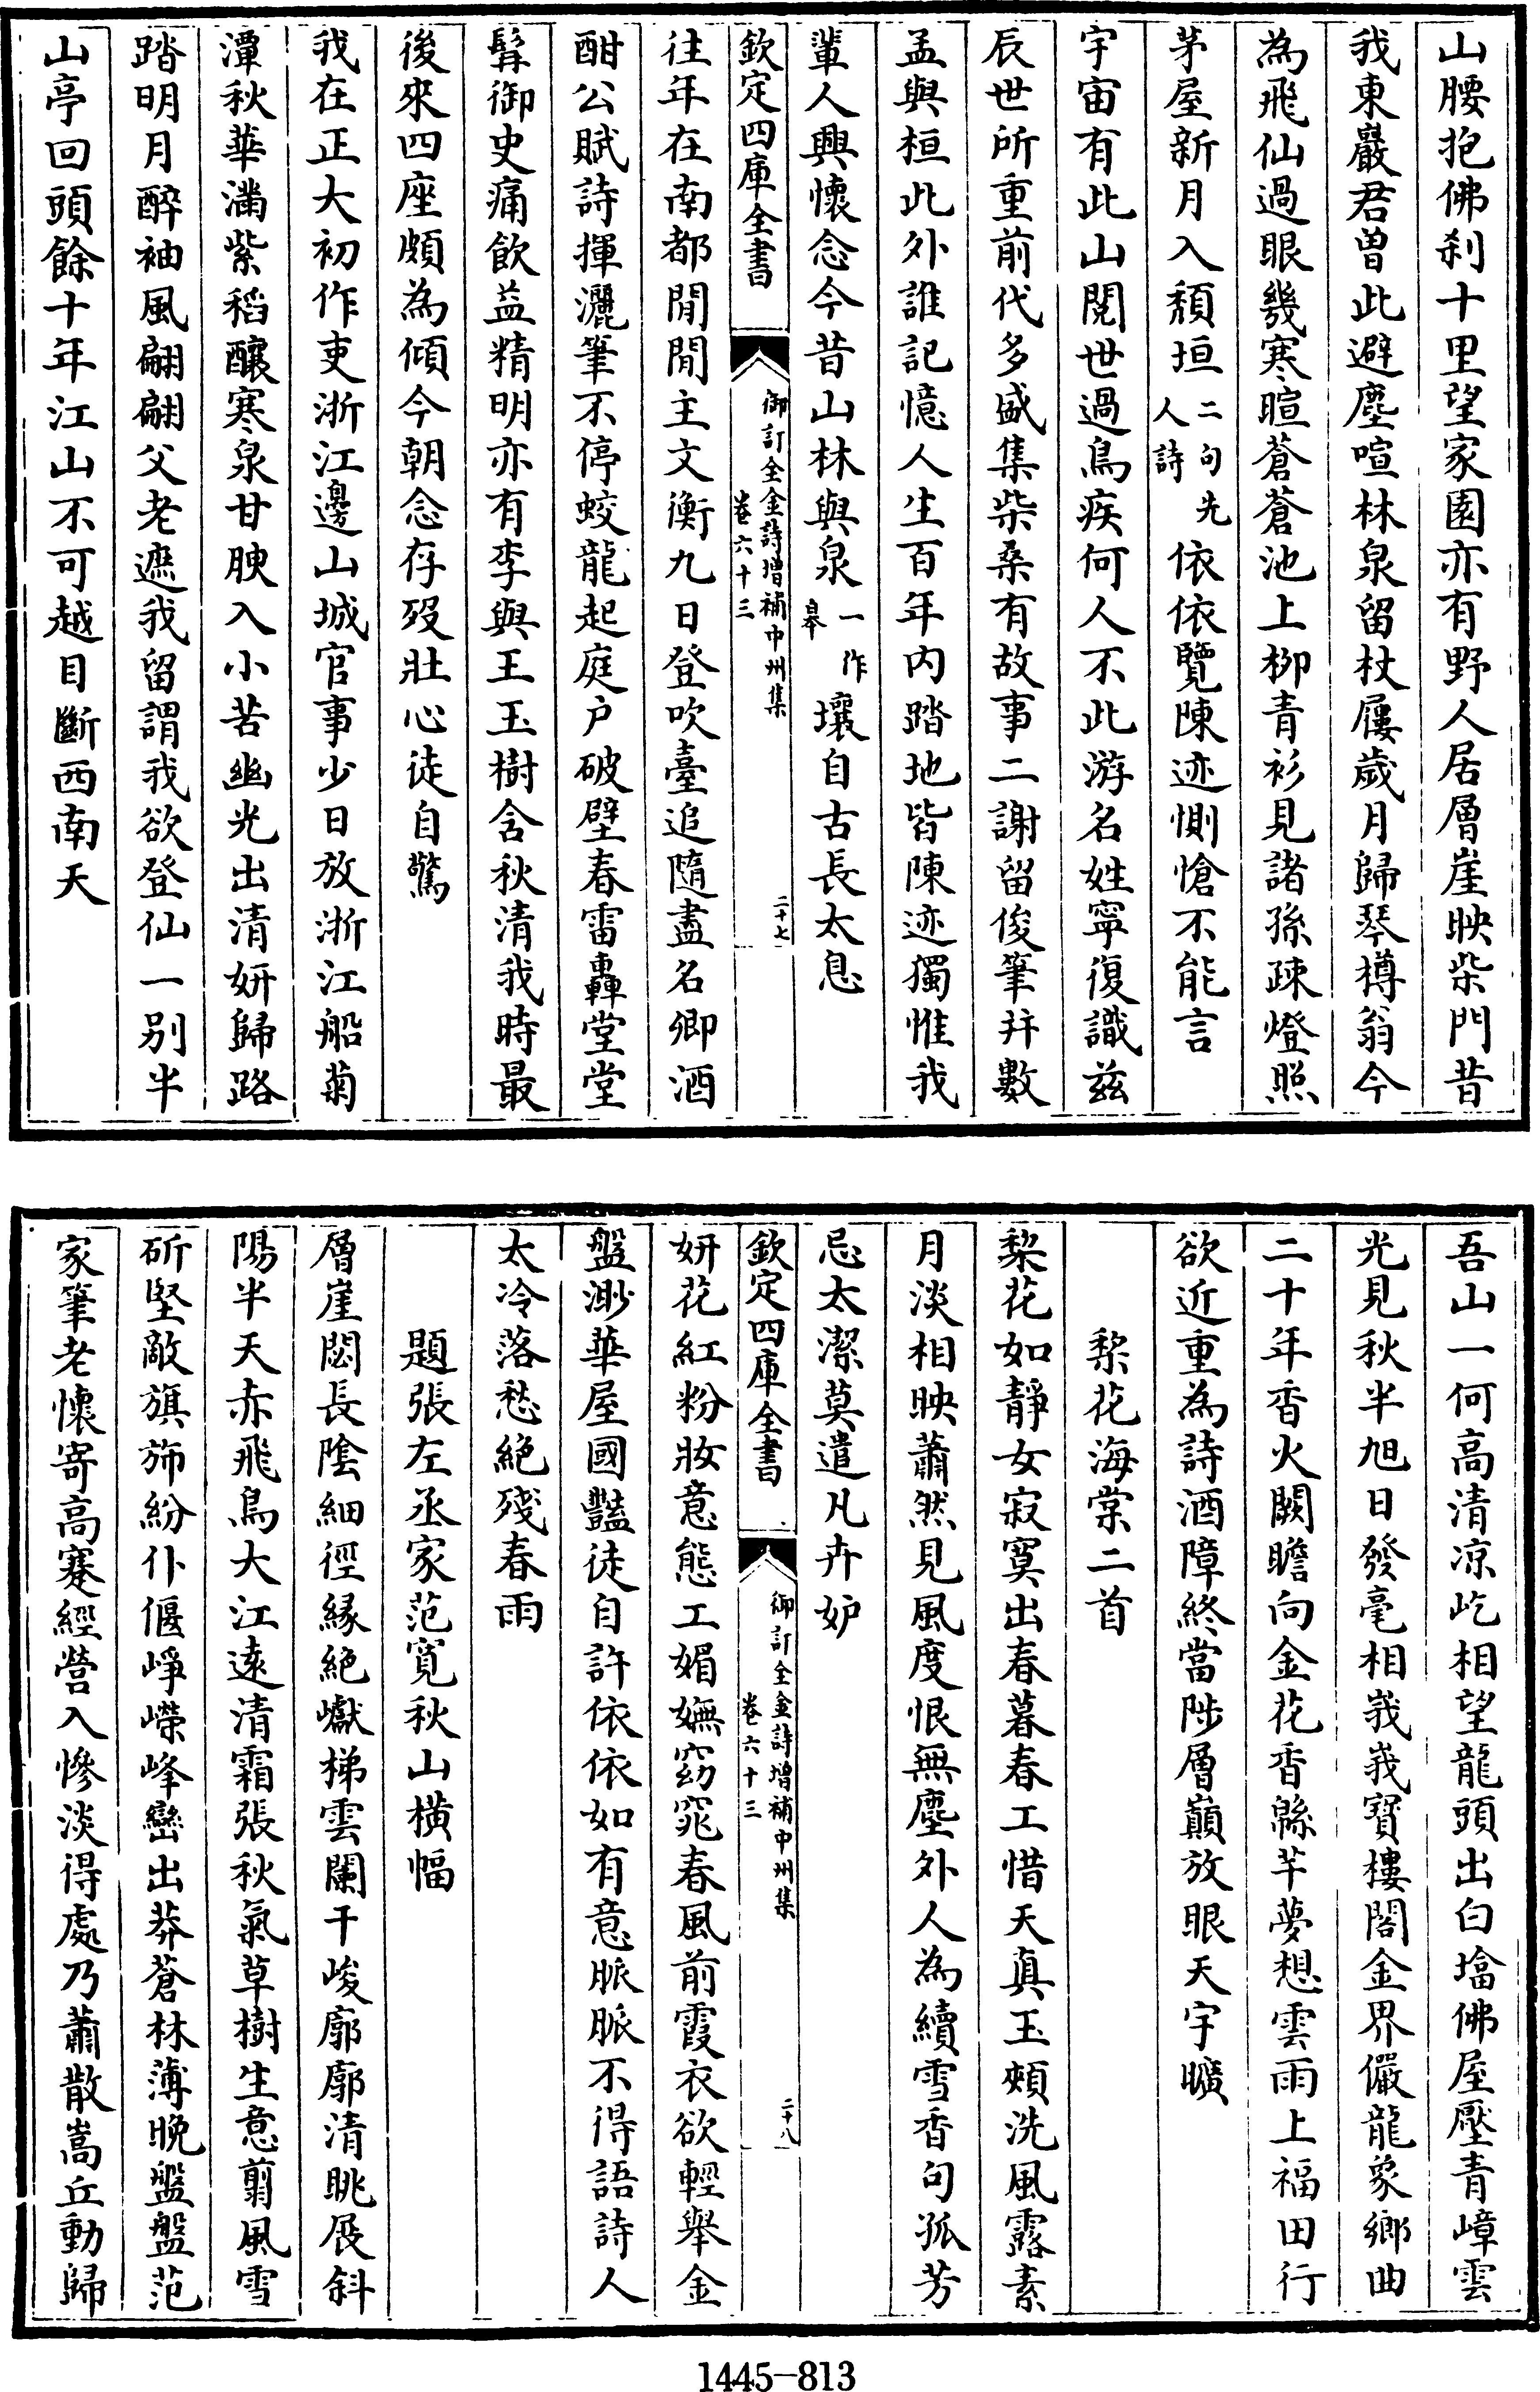 山腰抱佛刹十里望家園亦有野人居層崖映柴門昔
我東巖君曽此避塵喧林泉留杖屨歲月歸琴樽翁今
為飛仙過眼幾寒暄蒼蒼池上栁青衫見諸孫疎燈照
茅屋新月入頽垣二句先人詩依依覽陳迹惻愴不能言
宇宙有此山閱世過鳥疾何人不此游名姓寧復識兹
辰世所重前代多盛集柴桑有故事二謝留俊筆并數
孟與桓此外誰記憶人生百年内踏地皆陳迹獨惟我
輩人興懷念今昔山林與泉一作皋壤自古長太息
欽定四庫全書
御訂全金詩增補中州集
卷六十三
二十七
往年在南都閒閒主文衡九日登吹臺追隨盡名卿酒
酣公賦詩揮灑筆不停蛟龍起庭户破壁春雷轟堂堂
髯御史痛飲益精明亦有李與王玉樹含秋清我時最
後來四座頗為傾今朝念存歿壯心徒自驚
我在正大初作吏浙江邊山城官事少日放浙江船菊
潭秋華滿紫稻釀寒泉甘腴入小苦幽光出清妍歸路
踏明月醉袖風翩翩父老遮我留謂我欲登仙一别半
山亭回頭餘十年江山不可越目斷西南天
吾山一何高清凉屹相望龍頭出白墖佛屋壓青嶂雲
光見秋半旭日發毫相峩峩寳樓閣金界儼龍象鄉曲
二十年香火闕瞻向金花香緜芊夢想雲雨上福田行
欲近重為詩酒障終當陟層巔放眼天宇曠
棃花海棠二首
棃花如靜女寂寞出春暮春工惜天真玉頰洗風露素
月淡相映蕭然見風度恨無塵外人為續雪香句孤芳
忌太潔莫遣凡卉妒
欽定四庫全書
御訂全金詩增補中州集
卷六十三
二十八
妍花紅粉妝意態工媚嫵窈窕春風前霞衣欲輕舉金
盤渺華屋國豔徒自許依依如有意脈脈不得語詩人
太冷落愁絶殘春雨
題張左丞家范寛秋山橫幅
層崖閟長陰細徑緣絶巘梯雲闌干峻廓廓清眺展斜
陽半天赤飛鳥大江遠清霜張秋氣草樹生意翦風雪
斫堅敵旗斾紛仆偃崢嶸峰巒出莽蒼林薄晩盤盤范
家筆老懷寄高蹇經營入慘淡得處乃蕭散嵩丘動歸
1445-813